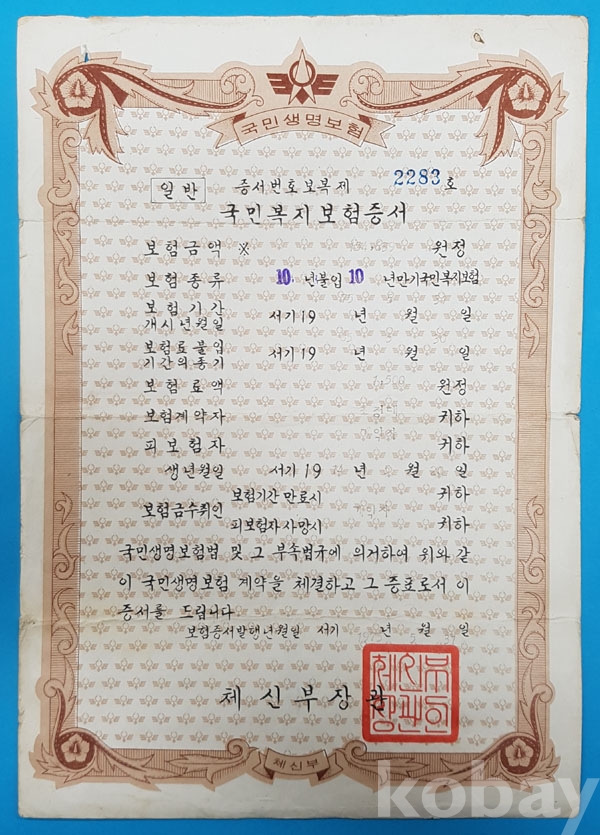 국민생명보험
일반 증서번호보복제 2283호
국민복지보험증서
보험금액 ※ 원정
보험종류 10 년불입 10 년만기국민복지보험
보험기간
개시년월일 서기19 년 월 일
보험료불입
기간의종기 서기19 년 월 일
보험료액 원정
보험계약자 귀하
피보험자 귀하
생년월일 서기19 년 월 일
보험금수취인 보험기간만료시 귀하
피보험자사망시 귀하
국민생명보험법 및 그 부속법규에 의거하여 위와 같
이 국민생명보험 계약을 체결하고 그 증표로서 이
증서를 드립니다
보험증서발행년월일 서기 년 월 일
체신부장관
체신부
kobay